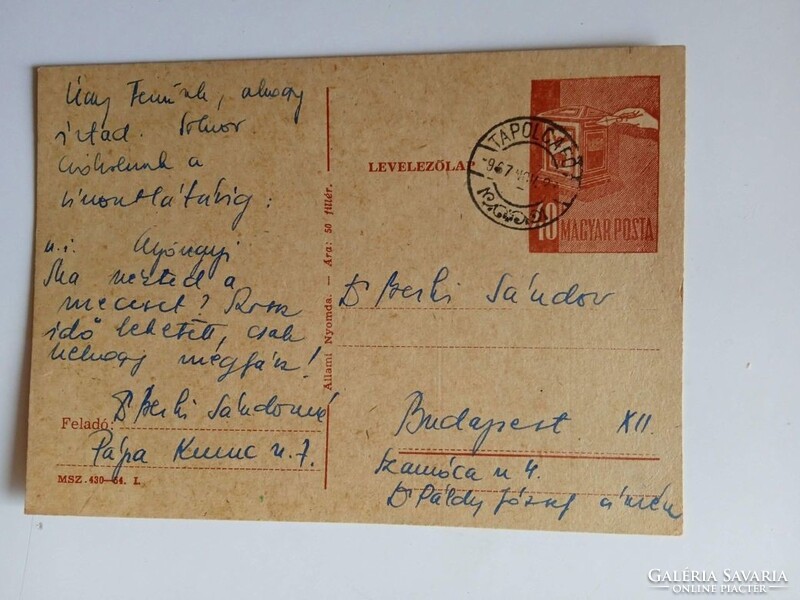 Úgy Temünk, ahogy
írtad. Sokszor
csókolunk a
viszontlátásig:
u.i. Gyöngyi
Ma nézted a
meccset? Rossz
idő lehetett, csak
nehogy megfázz!
Feladó: Dr Berki Sándorné
Pápa Kuruc u. 7.
MSZ. 430—64. L.
Állami Nyomda. — Ára: 50 fillér.
LEVELEZŐLAP
TAPOLCAFŐ
MAGYAR POSTA
Dr Berki Sándor
Budapest XII.
Szamóca u 4.
Dr Páldy József címén
GALÉRIA SAVARIA
ONLINE PIACTÉR